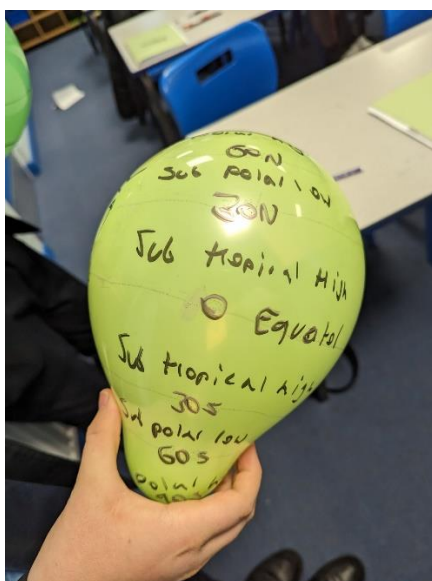 60N
Sub polar low
30N
Sub tropical High
0 Equator
Sub tropical high
30S
Sub polar low
60S
polar